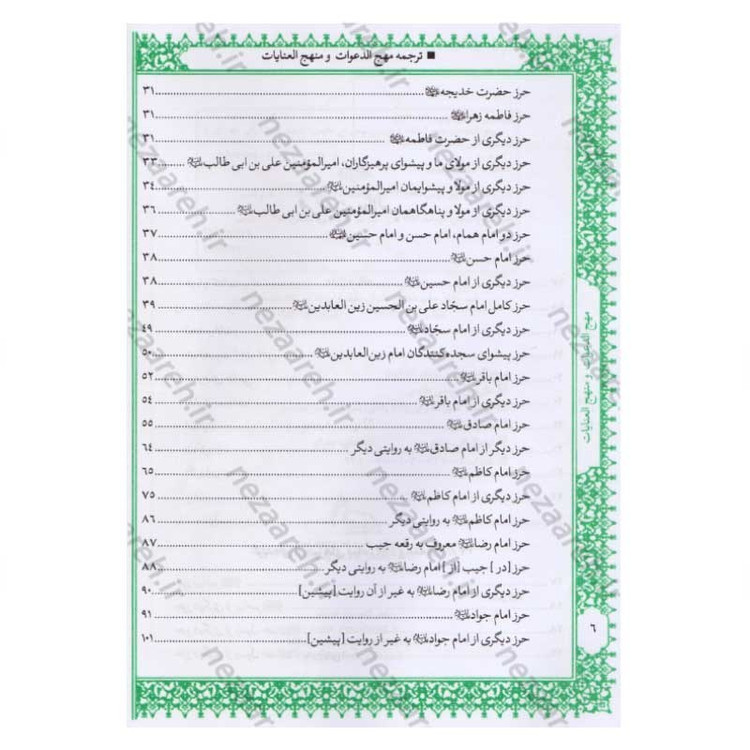 ■ ترجمه مهج الدعوات و منهج العنایات
حرز حضرت خدیجه ۳۱
حرز فاطمه زهرا ۳۱
حرز دیگری از حضرت فاطمه ۳۱
حرز دیگری از مولای ما و پیشوای پرهیزگاران، امیرالمؤمنین علی بن ابی طالب ۳۳
حرز دیگری از مولا و پیشوایمان امیرالمؤمنین ۳٤
حرز دیگری از مولا و پناهگاهمان امیرالمؤمنین علی بن ابی طالب ۳۶
حرز دو امام همام، امام حسن و امام حسین ۳۷
حرز امام حسن ۳۸
حرز دیگری از امام حسین ۳۸
حرز کامل امام سجّاد علی بن الحسین زین العابدین ۳۹
حرز دیگری از امام سجّاد ٤۹
حرز پیشوای سجده‌کنندگان امام زین العابدین ۵۰
حرز امام باقر ۵۲
حرز دیگری از امام باقر ۵٤
حرز امام صادق ۵۵
حرز دیگر از امام صادق به روایتی دیگر ۶٤
حرز امام کاظم ۶۵
حرز دیگری از امام کاظم ۷۵
حرز امام کاظم به روایتی دیگر ۸۶
حرز امام رضا معروف به رقعه جیب ۸۷
حرز [در] جیب [از] امام رضا به روایتی دیگر ۸۸
حرز دیگری از امام رضا به غیر از آن روایت [پیشین] ۹۰
حرز امام جواد ۹۱
حرز دیگری از امام جواد به غیر از روایت [پیشین] ۱۰۱
مهج الدعوات و منهج العنایات
۶
nezaareh.ir